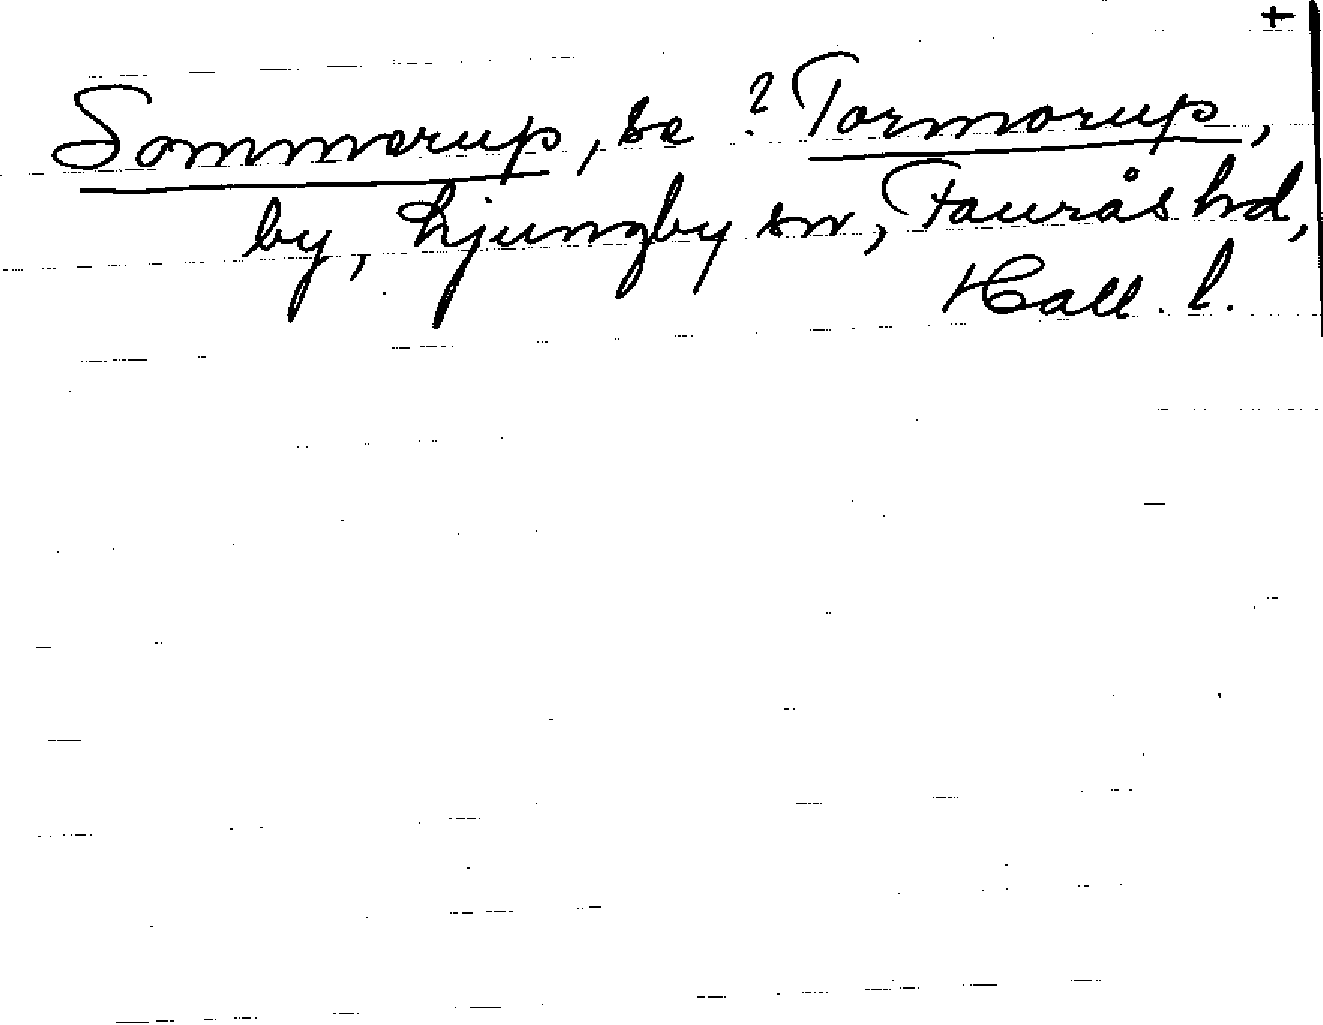 +
Sommorup, se ? Tormorup,
by, Ljungby sn, Faurås hd,
Hall. l.